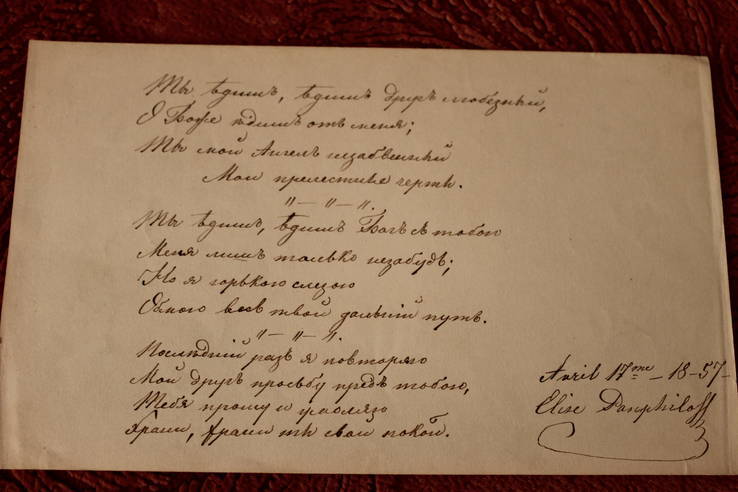 Ты ѣдишъ, ѣдишъ другъ любезный,
О Боже ѣдишъ отъ меня;
Ты мой Ангелъ незабвенный
Мои прелестные черты.
"—"—".
Ты ѣдишъ, ѣдишъ Богъ съ тобою
Меня лишъ только незабудь;
Но я горькою слезою
Обмою весь твой дальный путь.
"—"—".
Послѣдній разъ я повторяю
Мой другъ просьбу предъ тобою,
Тебя прошу и умоляю
Храни, храни ты свой покой.
Avril 17me — 18-57-
Elise Danphiloff